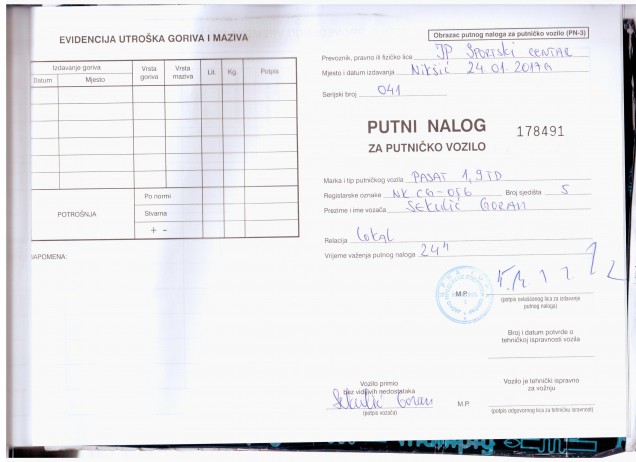 EVIDENCIJA UTROŠKA GORIVA I MAZIVA
Izdavanje goriva
Datum Mjesto
Vrsta goriva
Vrsta maziva
Lit.
Kg.
Potpis
POTROŠNJA
Po normi
Stvarna
+ -
NAPOMENA:
Obrazac putnog naloga za putničko vozilo (PN-3)
Prevoznik, pravno ili fizičko lice JP SPORTSKI CENTAR
Mjesto i datum izdavanja Nikšić 24 01. 2017 g
Serijski broj 041
PUTNI NALOG 178491
ZA PUTNIČKO VOZILO
Marka i tip putničkog vozila PASAT 1,9 TD
Registarske oznake NK CG-056 Broj sjedišta 5
Prezime i ime vozača SEKULIĆ GORAN
Relacija LOKAL
Vrijeme važenja putnog naloga 24h
M.P.
(potpis ovlašćenog lica za izdavanje
putnog naloga)
Broj i datum potvrde o
tehničkoj ispravnosti vozila
Vozilo primio
bez vidljivih nedostataka
Sekulić Goran
(potpis vozača)
Vozilo je tehnički ispravno
za vožnju
M.P.
(potpis odgovornog lica za tehničku ispravnost)